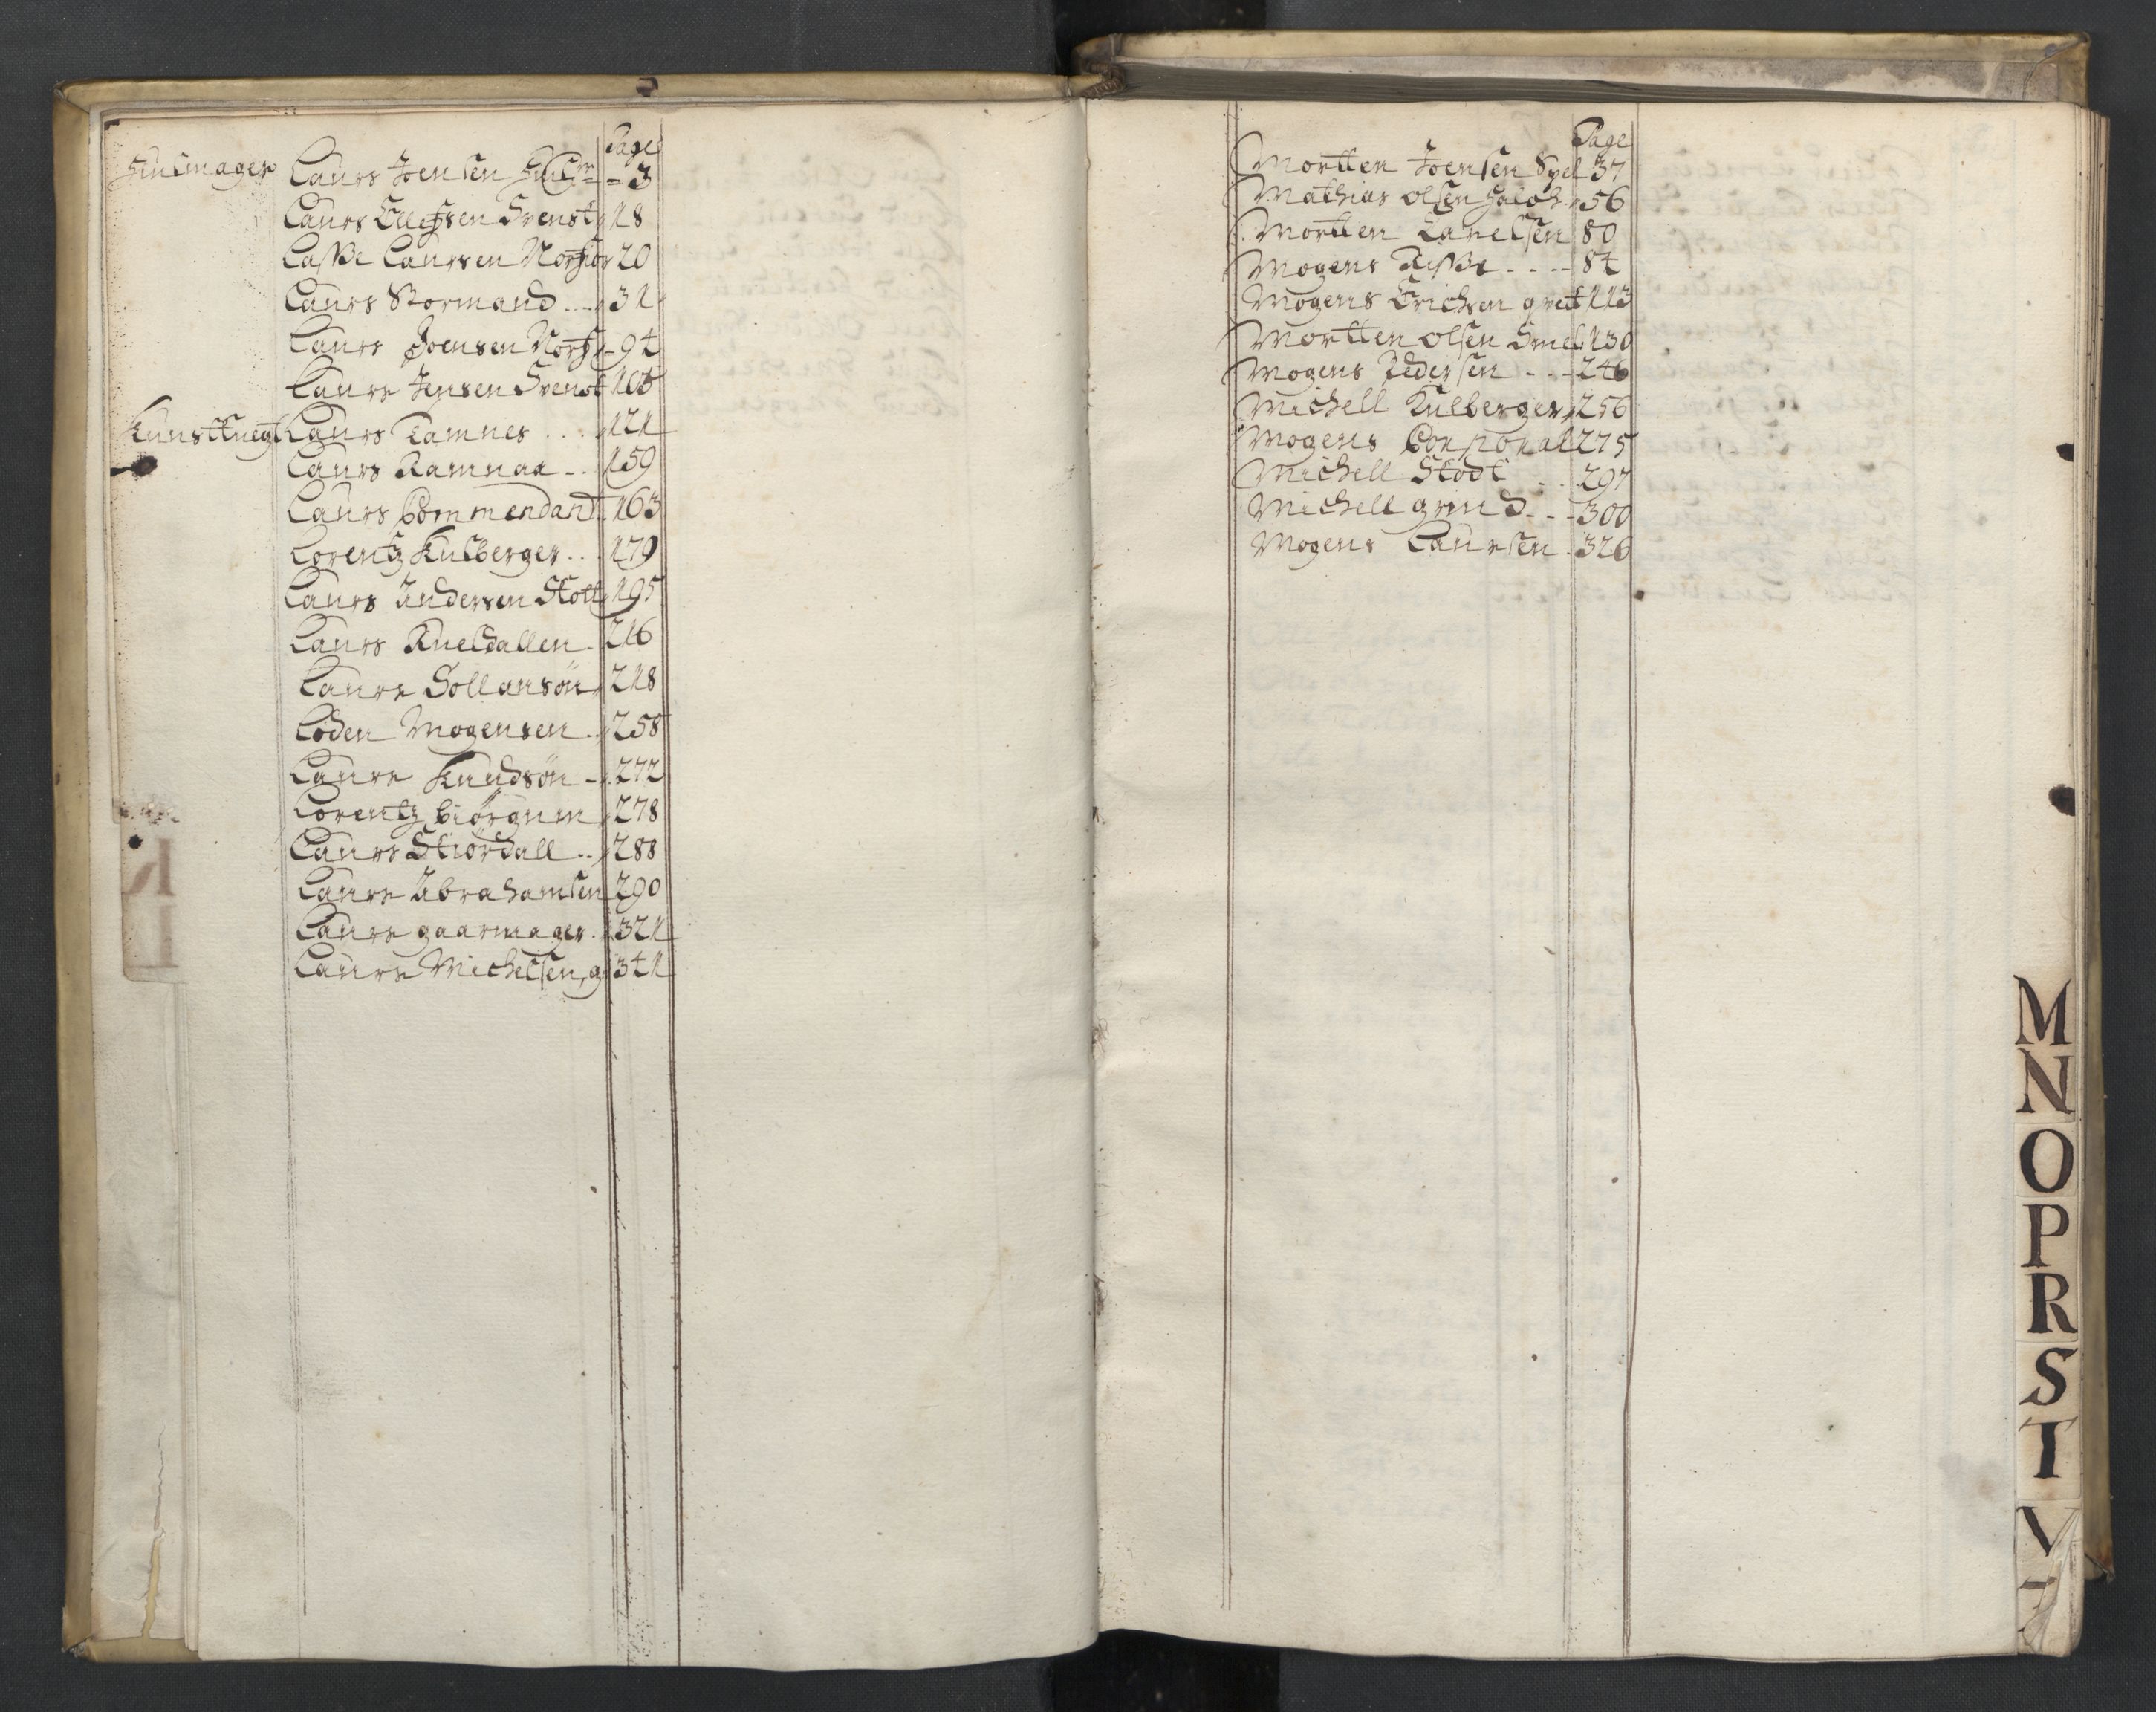 Page
Hiulmager Laurs Joensen Hiulm - 3
Laurs Ellefsen Svenst 18
Laße Laursen Norfior 20
Laurs Stormand .... 31
Laurs Joensen Norf - 94
Laurs Jensen Svensk 105
Kunstknegt Laurs Tamnes .... 121
Laurs Ramnaa .. 159
Laurs Commendant 163
Lorentz Kulberger .. 179
Laurs Andersen Stott 195
Laurs Kueldallen 216
Laurs Sollansön 218
Loden Mogensen .. 258
Laurs Knudsön - 272
Lorentz biörgum 278
Laurs Stiördall .. 288
Laurs Abrahamsen 290
Laurs gaarmager . 321
Laurs Michelsen g 341
Page
Mortten Joensen Spel 37
Mathias olsen 56
Mortten Carelsen 80
Mogens Riße .... 84
Mogens Erichsen 113
Mortten olsen Smel 130
Mogens Pedersen ... 246
Michell Kulberger 256
Mogens Corporal 275
Michell Stodt .. 297
Michell grind ... 300
Mogens Laursen . 326
M
N
O
P
R
S
T
V